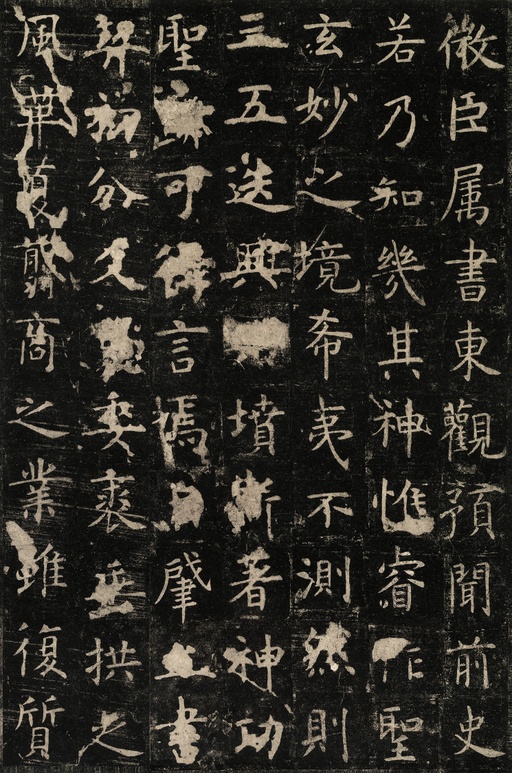 微臣属書東觀預聞前史
若乃知幾其神惟睿作聖
玄妙之境希夷不測然則
三五迭興墳斯著神功
聖迹可得言焉自肇立書
契初分爻委裘垂拱之
風華夏翦商之業雖復質